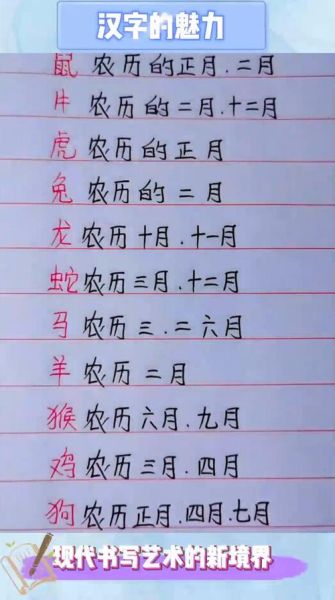 汉字的魅力
鼠 农历的正月.二月
牛 农历的二月.十二月
虎 农历的正月
兔 农历的二月
龙 农历十月.十一月
蛇 农历三月.十二月
马 农历三.二六月
羊 农历二月
猴 农历六月.九月
鸡 农历三月.四月
狗 农历正月.四月.七月
现代书写艺术的新境界